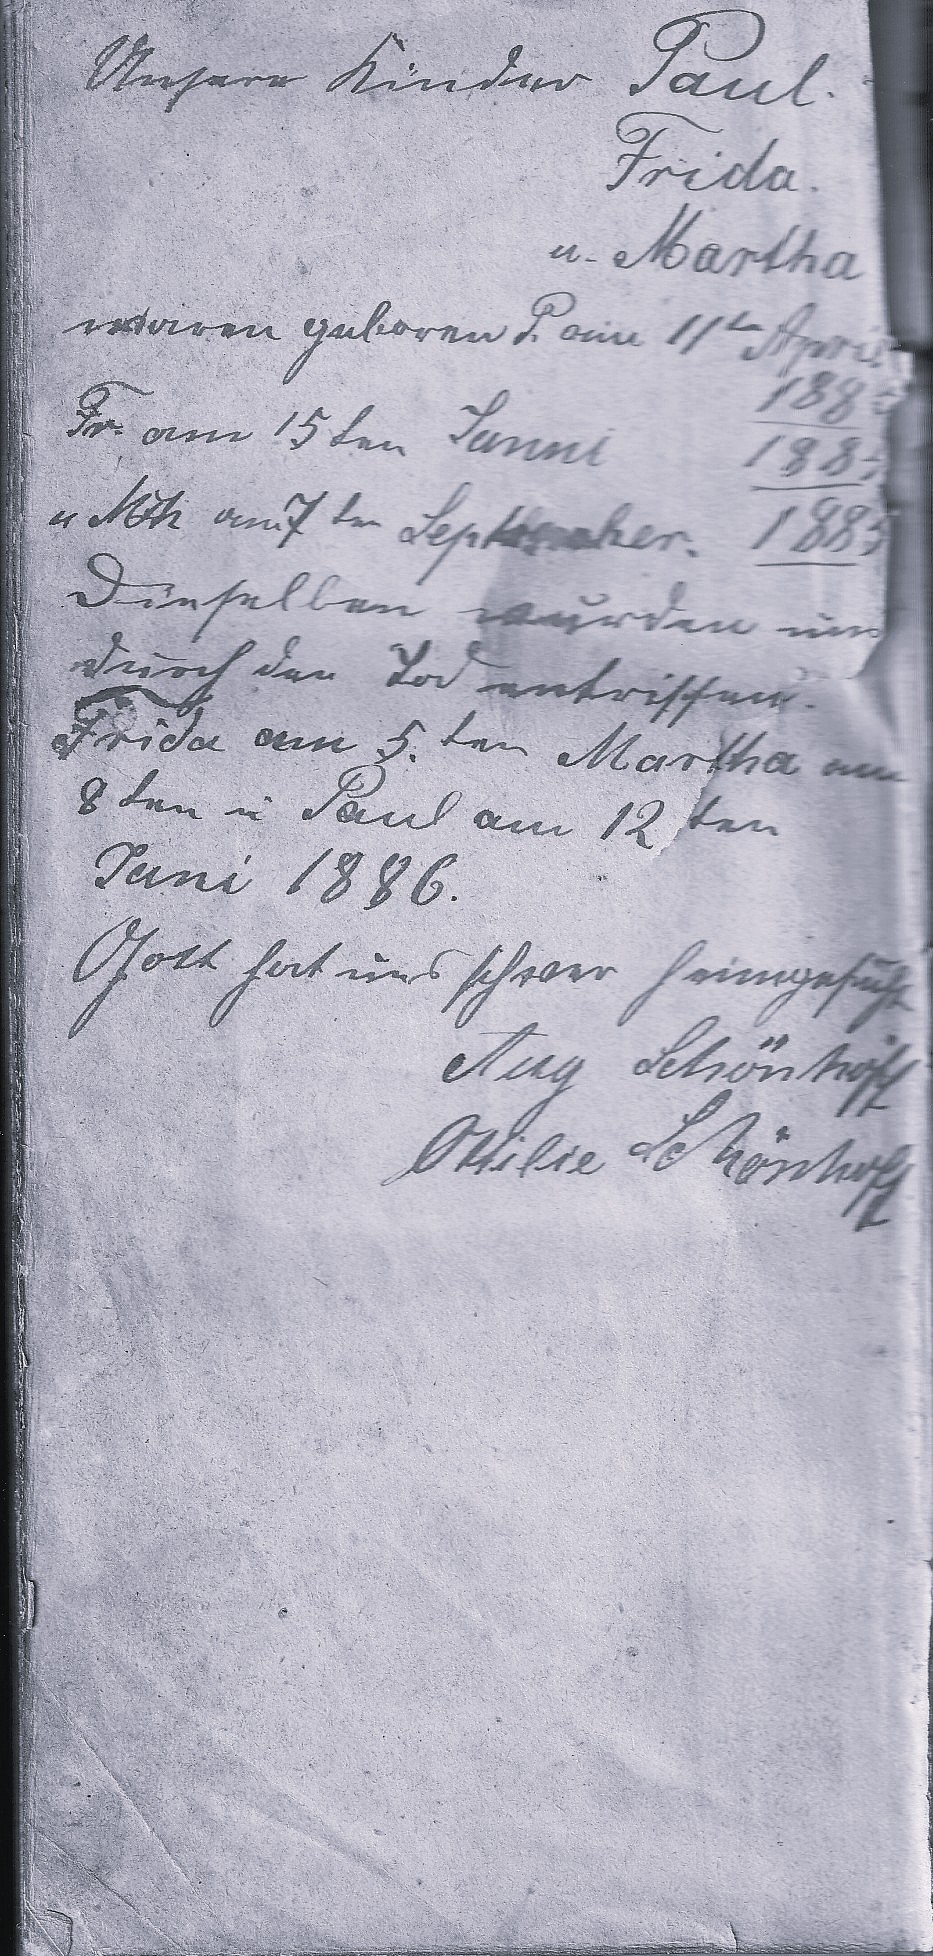 Unsere Kinder Paul.
Frida.
u. Martha
waren geboren P. am 11ten April
188
Fr. am 15ten Januni 188
u Mth am 7ten September. 188
Dieselben wurden uns
durch den Tod entrissen.
Frida am 5. ten Martha am
8ten u Paul am 12ten
Juni 1886.
Gott hat uns schwer heimgesucht
Aug Schönhoff
Ottilie Schönhoff